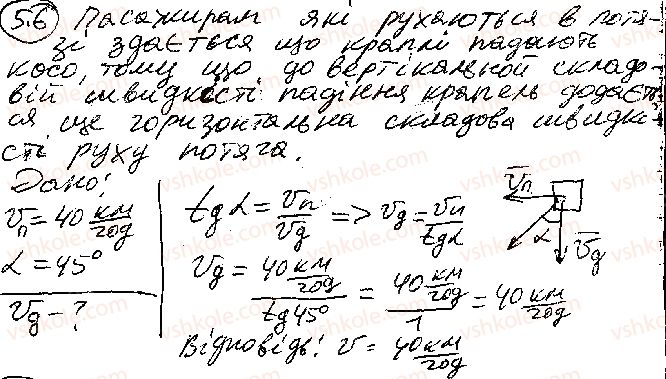 5.6 Пасажирам які рухаються в потя-
зі здається що краплі падають
косо, тому що до вертікальной складо-
вій швидкості падіння крапель додаєть-
ся ще горизонтальна складова швидко-
сті руху потяга.
Дано:
Vп = 40 км/год
α = 45°
Vд - ?
tg α = Vп/Vд => Vд = Vп/tg α
Vд = 40 км/год / tg 45° = 40 км/год / 1 = 40 км/год
Відповідь: V = 40 км/год
Vп
α
Vд